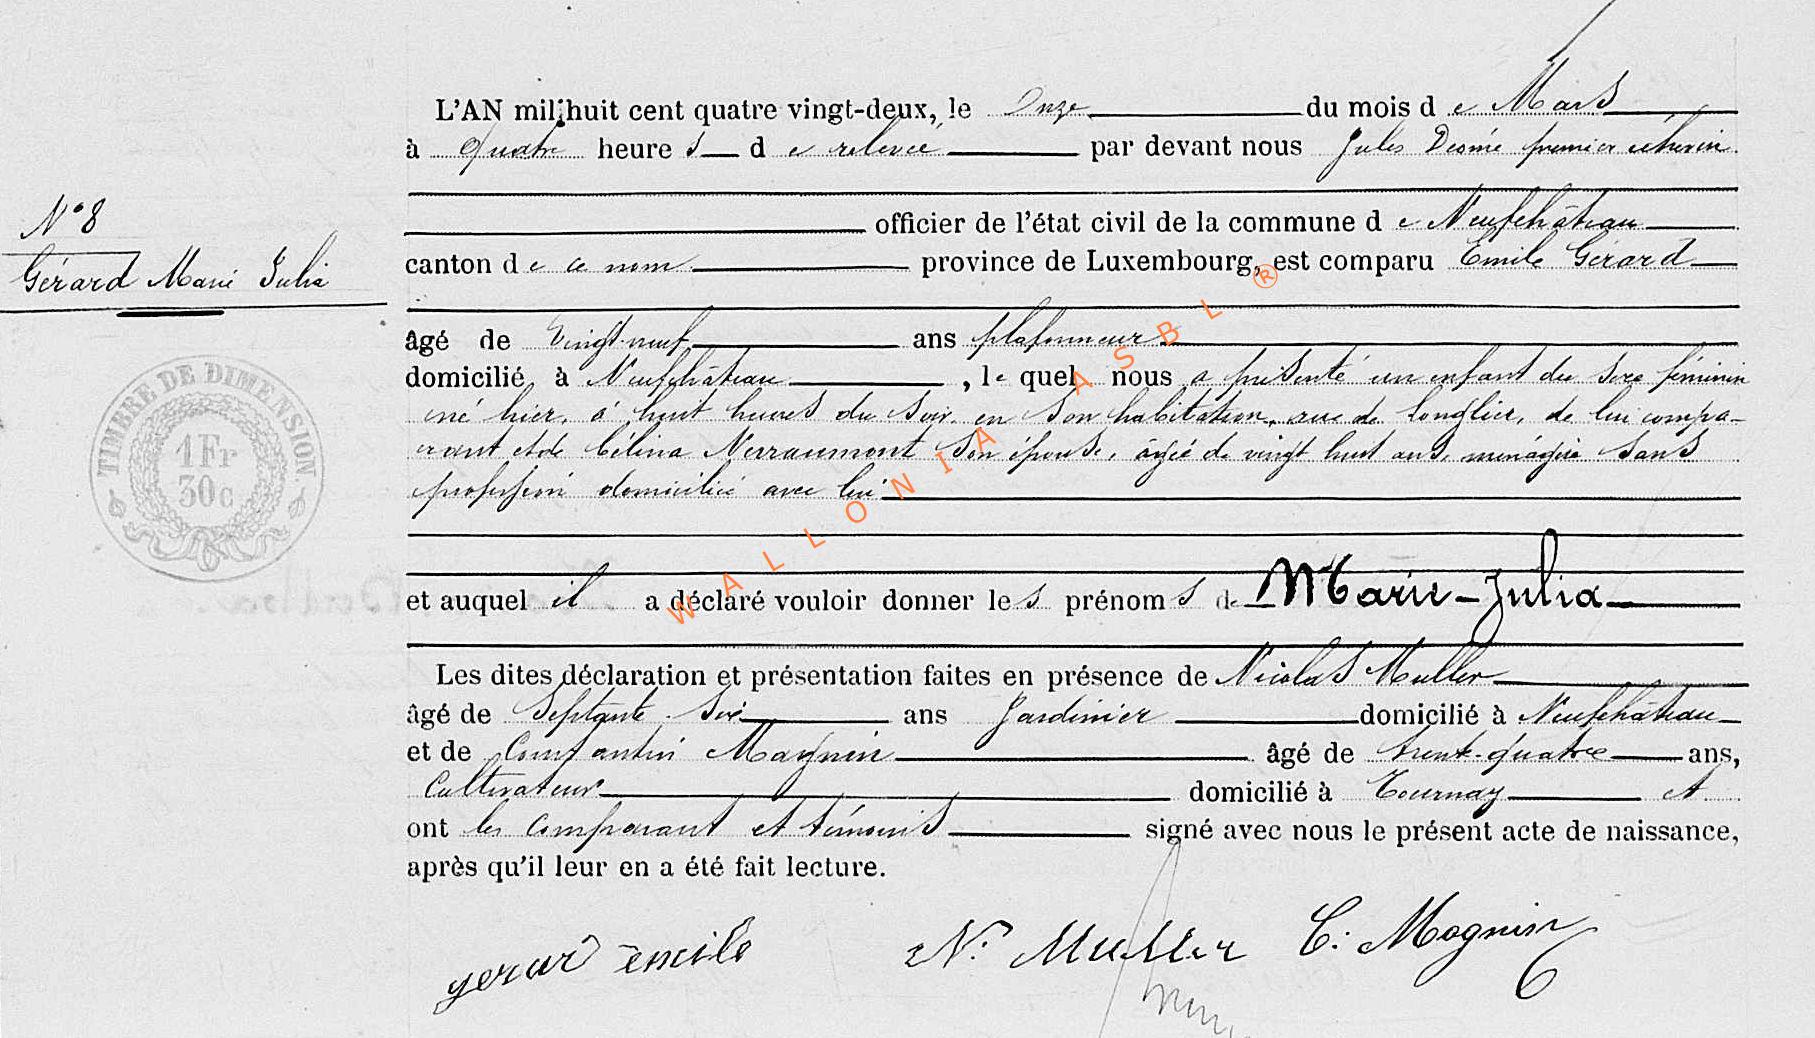 L'AN mil huit cent quatre vingt-deux, le Onze du mois de Mars
à quatre heures de relevée par devant nous Jules Desmé premier échevin
officier de l'état civil de la commune de Neufchâteau
N° 8
canton de ce nom province de Luxembourg, est comparu Emile Gérard
Gérard Marie Julia
âgé de vingt-neuf ans plafonneur
domicilié à Neufchâteau, lequel nous a présenté un enfant du sexe féminin
né hier, à huit heures du soir en son habitation, rue de Longlier, de lui compa-
rant et de Célina Nerraumont son épouse, âgée de vingt huit ans, ménagère sans
profession domiciliée avec lui
TIMBRE DE DIMENSION
1Fr
30c
et auquel il a déclaré vouloir donner les prénoms de Marie-Julia
Les dites déclaration et présentation faites en présence de Nicolas Muller
âgé de septante-six ans Jardinier domicilié à Neufchâteau
et de Constantin Magnin âgé de trente-quatre ans,
Cultivateur domicilié à Tournay et
ont les comparant et témoins signé avec nous le présent acte de naissance,
après qu'il leur en a été fait lecture.
gerard emile N. Muller C. Magnin
WALLONIA ASBL ®